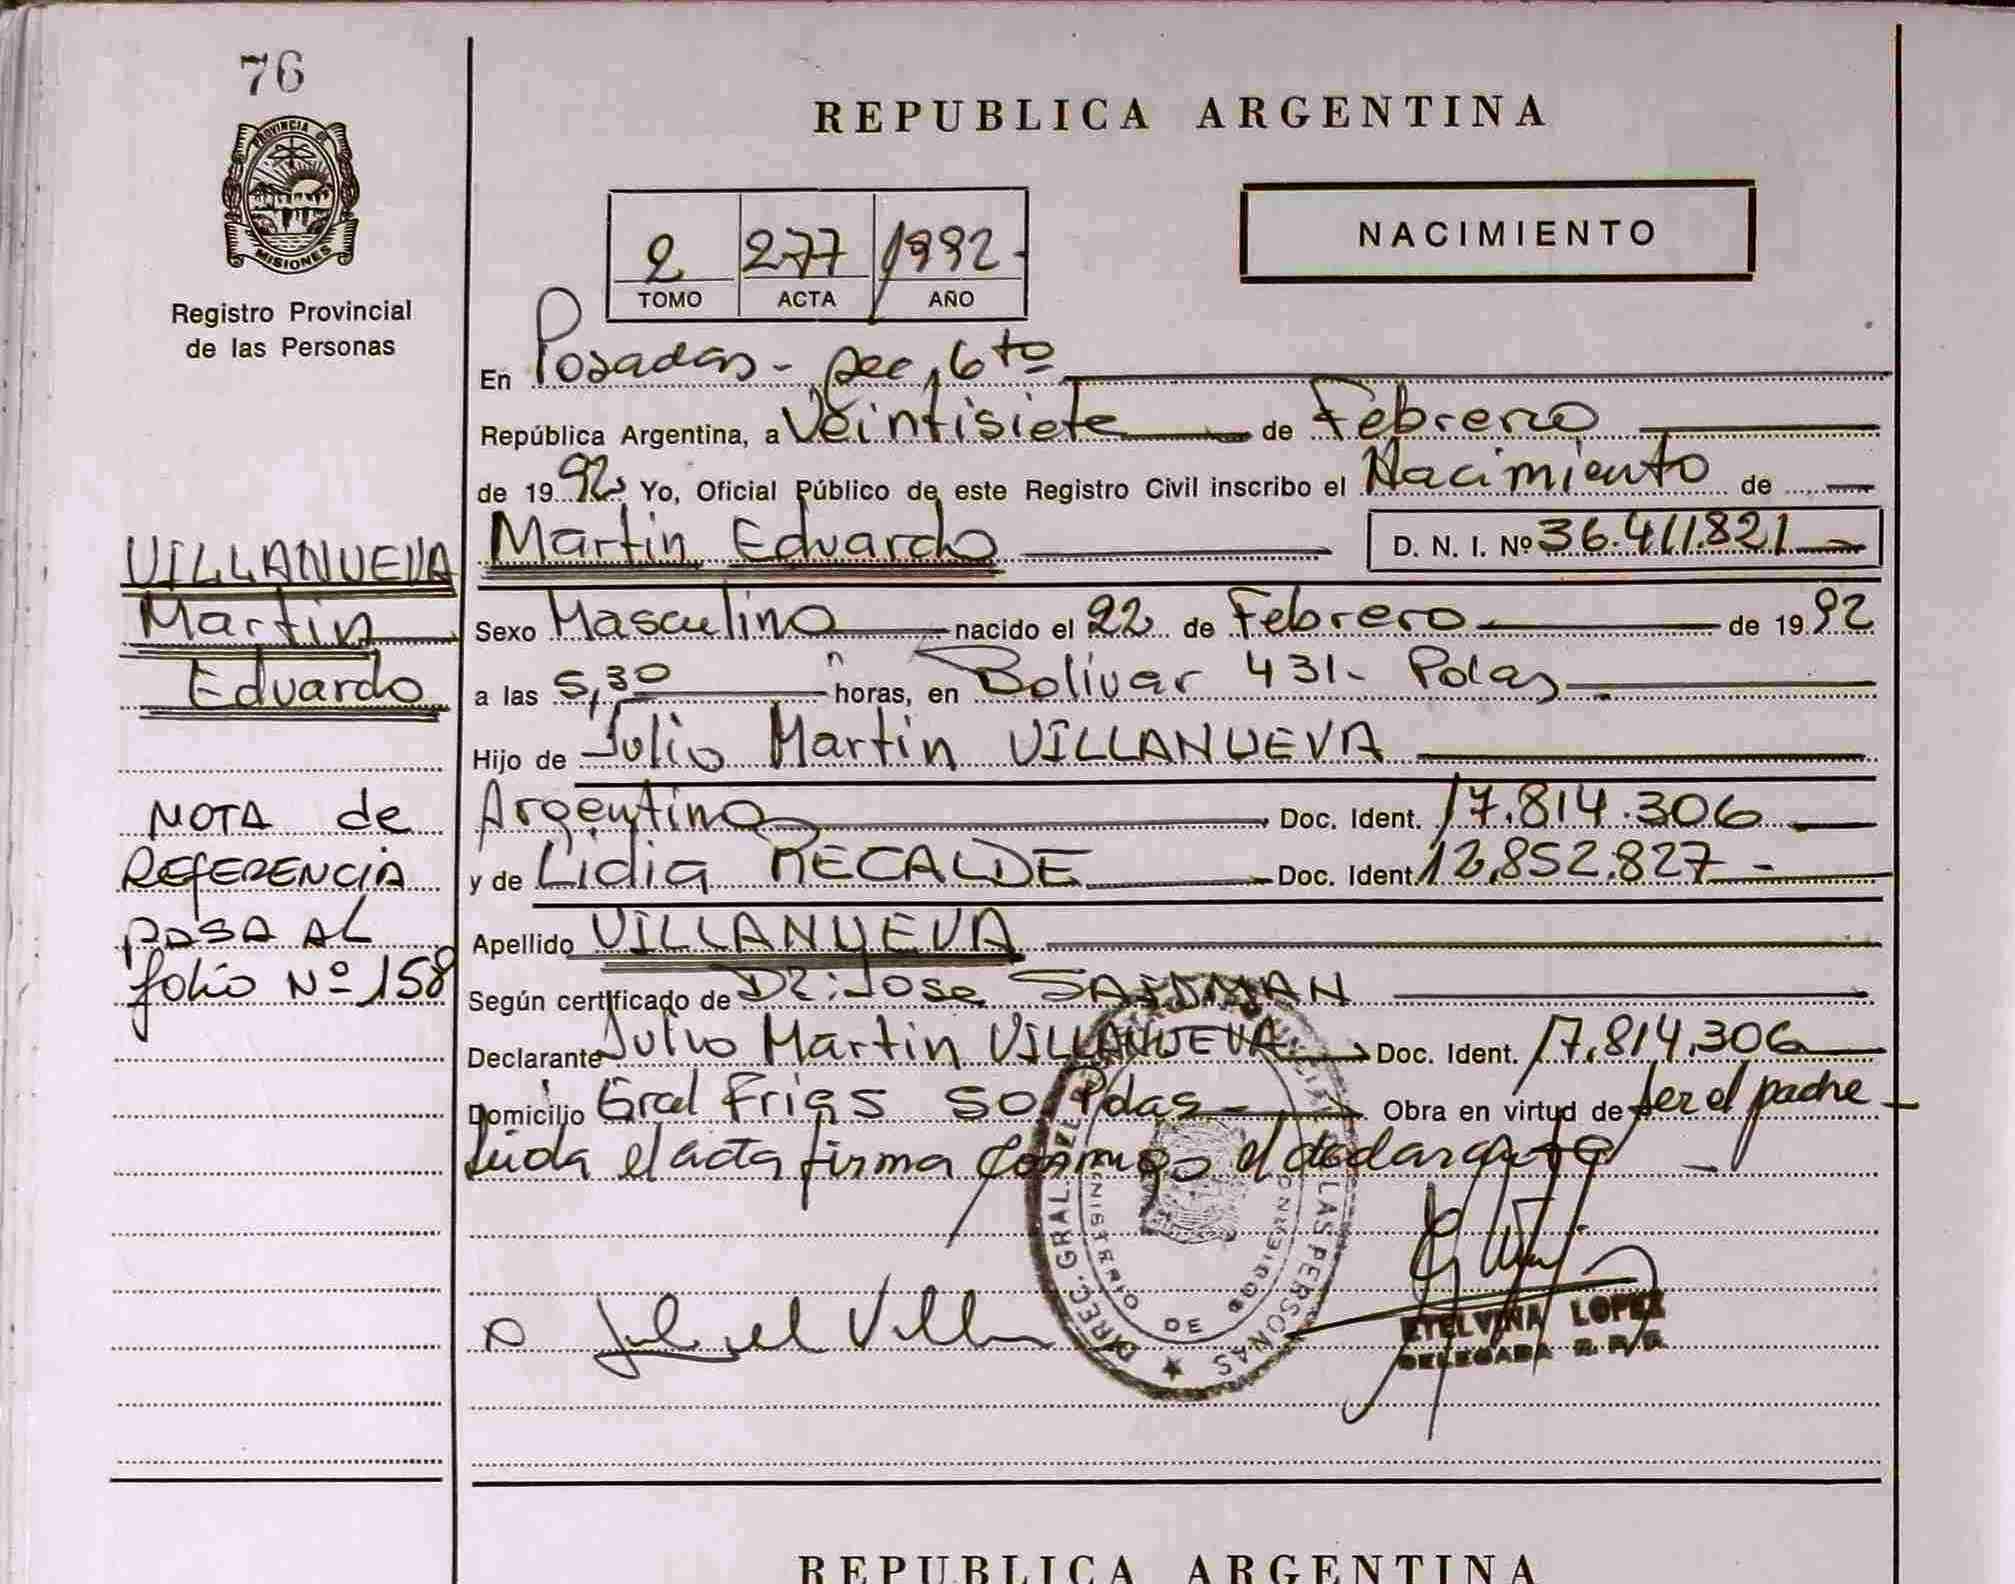 76
PROVINCIA DE
MISIONES
Registro Provincial
de las Personas
REPUBLICA ARGENTINA
NACIMIENTO
2 277 1992
TOMO ACTA AÑO
En Posadas - sec, 6to
República Argentina, a Veintisiete de Febrero
de 1992 Yo, Oficial Público de este Registro Civil inscribo el Nacimiento de
Martin Eduardo D. N. I. Nº 36.411.821
Sexo Masculino nacido el 22 de Febrero de 1992
a las 5,30 horas, en Bolivar 431 - Pdas
Hijo de Julio Martin VILLANUEVA
Argentino Doc. Ident. 17.814.306
y de Lidia RECALDE Doc. Ident. 12.852.827 -
Apellido VILLANUEVA
Según certificado de Dr: Jose
Declarante Julio Martin VILLANUEVA Doc. Ident. 17.814.306
Domicilio Gral Frias 50 Pdas - Obra en virtud de ser el padre
Leida el acta firma conmigo el declarante
VILLANUEVA
Martin
Eduardo
NOTA de
REFERENCIA
PASA AL
folio Nº 158
DIREC. GRAL. LAS PERSONAS
MINISTERIO DE GOBIERNO
ETELVINA LOPEZ
DELEGADA R.P.P.
REPUBLICA ARGENTINA